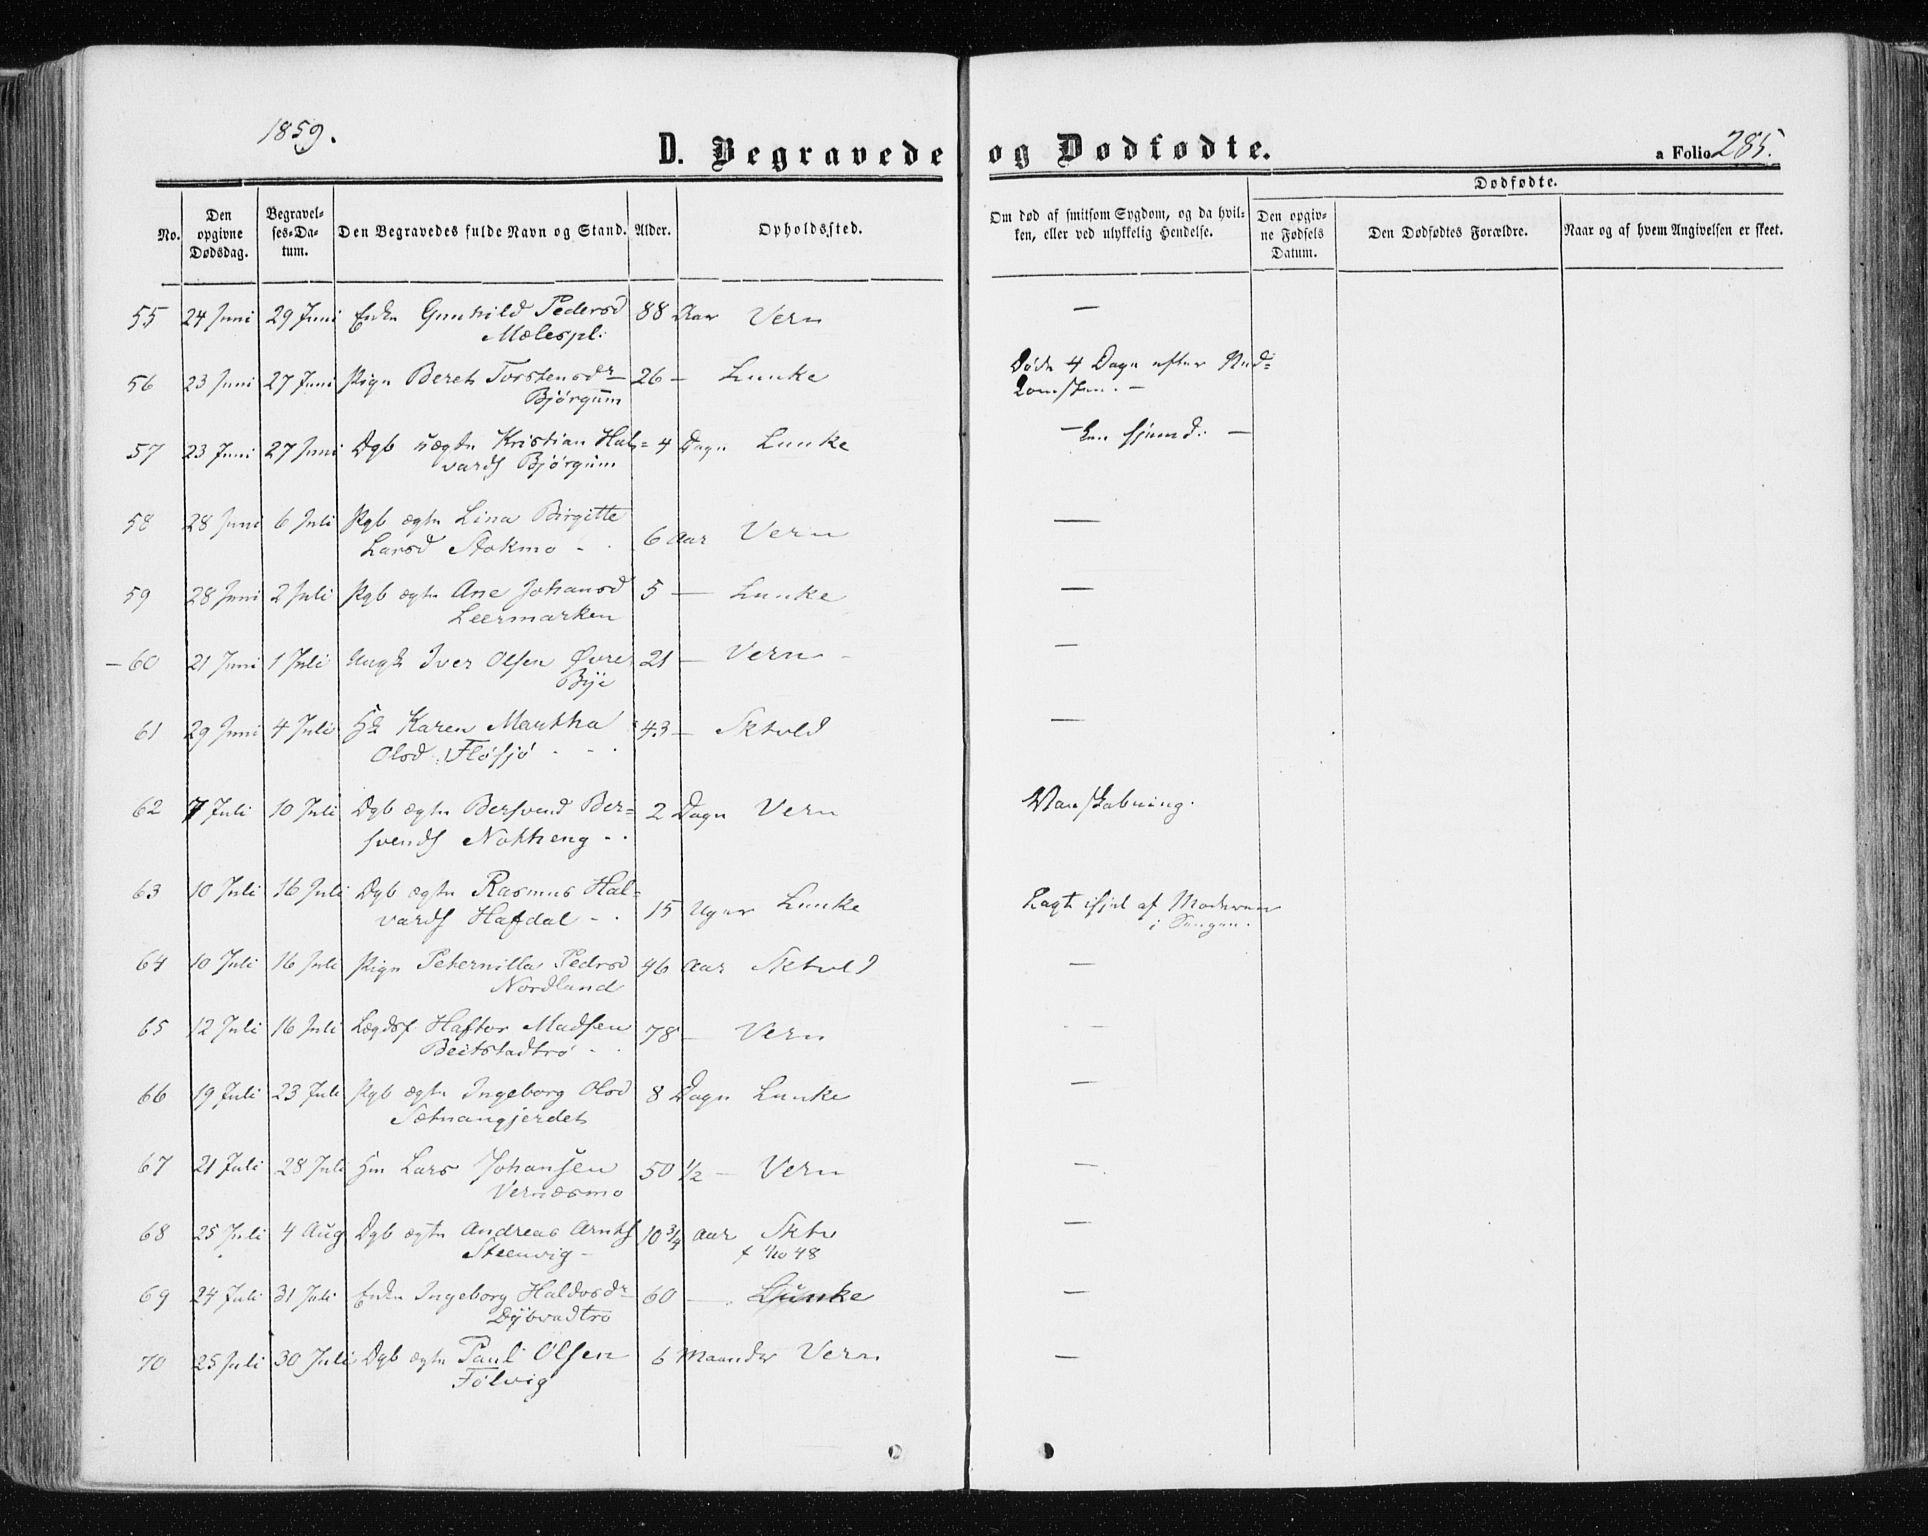 1859.
D. Begravede og Dødfødte.
a Folio 285.
No.
Den opgivne Dødsdag.
Begravelses-Datum.
Den Begravedes fulde Navn og Stand.
Alder.
Opholdssted.
Om død af smitsom Sygdom, og da hvilken, eller ved ulykkelig Hendelse.
Dødfødte.
Den opgivne Fødsels Datum.
Den Dødfødtes Forældre.
Naar og af hvem Angivelsen er skeet.
55 24 Juni 29 Juni Enke Gunhild Pedersd 88 Aar Vern —
Mælespl:
56 23 Juni 27 Juni Pige Beret Torstensdr 26 — Lunke Døde 4 Dage efter Ned=
Bjørgum komsten. —
57 23 Juni 27 Juni Dgb uægte Kristian Hal= 4 Dage Lunke
vards Bjørgum
58 28 Juni 6 Juli Pgb ægte Lina Birgitte
Larsd Stokmo 6 Aar Vern —
59 28 Juni 2 Juli Pgb ægte Ane Johansd 5 — Lunke —
Leermarken
60 21 Juni 1 Juli Ungk Iver Olsen Øvre 21 — Vern —
Bye
61 29 Juni 4 Juli Hk Karen Martha 43 — Sktvld —
Olsd Fløsjø
62 7 Juli 10 Juli Dgb ægte Bersvend Ber= 2 Dage Vern Vanskabning.
svends Nokheng
63 10 Juli 16 Juli Dgb ægte Rasmus Hal=
vards Hafdal 15 Uger Lunke Lagt ihjel af Moderen
i Sengen.
64 10 Juli 16 Juli Pige Peternilla Pedrsd 46 Aar Sktvld —
Nordland
65 12 Juli 16 Juli Lægdsf Haftor Madsen 78 — Vern
Beitstadtrø
66 19 Juli 23 Juli Pgb ægte Ingeborg Olsd 8 Dage Lunke —
Sætnangjerdet
67 21 Juli 28 Juli Hm Lars Johansen 50 1/2 — Vern —
Vernæsmo
68 25 Juli 4 Aug Dgb ægte Andreas Arnts 10 3/4 Aar Sktv —
Steenvig — f No 48
69 24 Juli 31 Juli Enke Ingeborg Haldosdr 60 — Lunke —
Dybvadtrø
70 25 Juli 30 Juli Dgb ægte Paul Olsen 6 Maander Vern —
Følvig